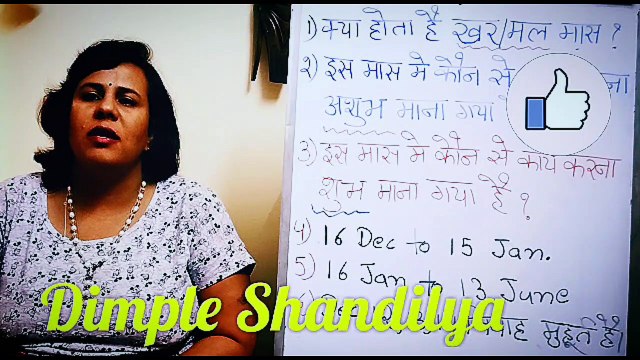 1) क्या होता है खर/मल मास ?
2) इस मास मे कौन से ना
अशुभ माना गया
3) इस मास मे कौन से कार्य करना
शुभ माना गया है ?
4) 16 Dec to 15 Jan.
5) 16 Jan to 13 June
Dimple Shandilya
मुहूर्त है।